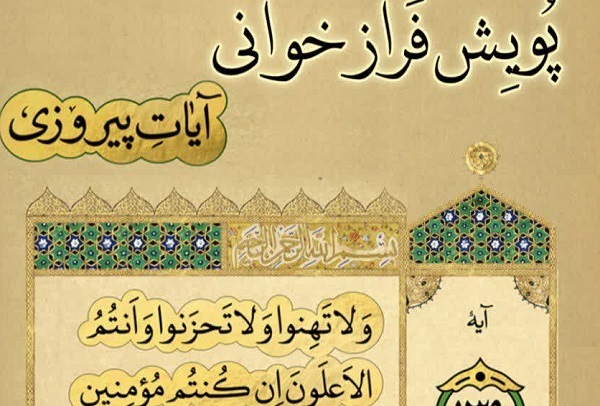 پُویِش فَراز خوانی
آیاتِ پیروزی
بسم الله الرحمن الرحیم
وَلا تَهِنوا وَلا تَحزَنوا وَاَنتُمُ
الاَعلَونَ اِن کُنتُم مُؤمِنین
آیهٔ